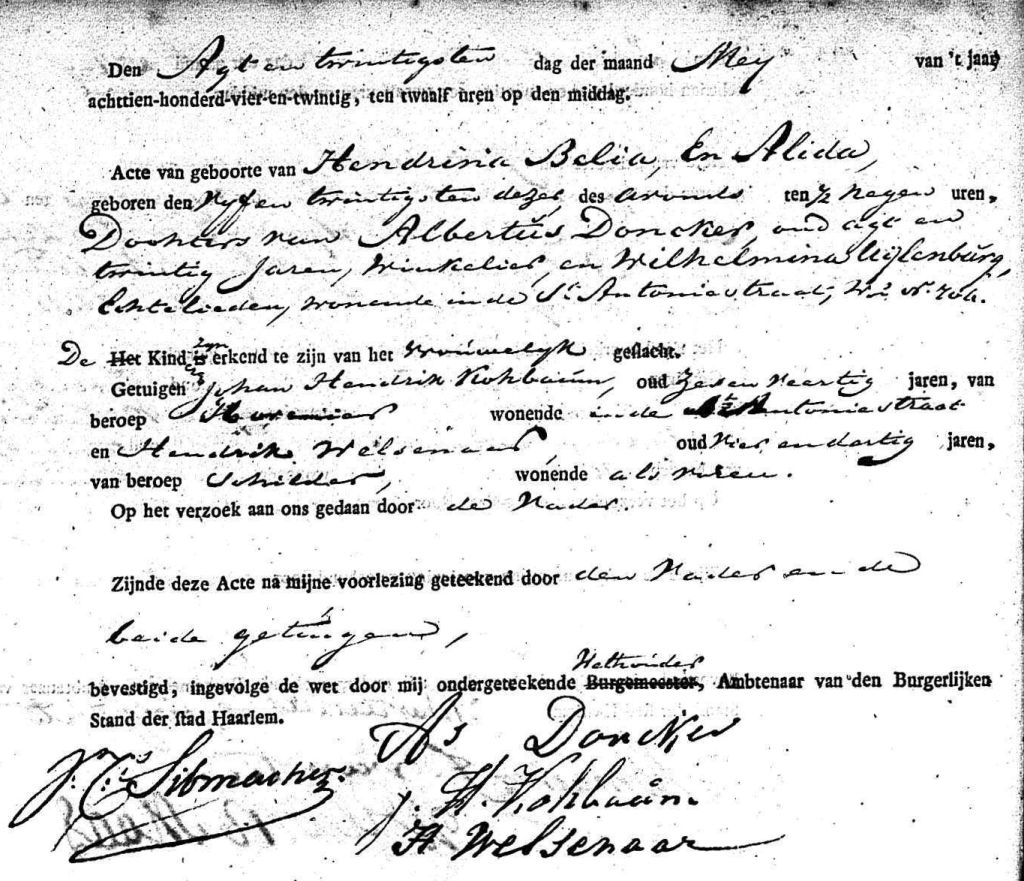 Den Agt en twintigsten dag der maand Mey van 't jaar
achttien-honderd-vier-en-twintig, ten twaalf uren op den middag.
Acte van geboorte van Hendrina Belia, En Alida,
geboren den Vyf en twintigsten dezer des avonds ten ½ negen uren,
Dochters van Albertus Doncker, oud agt en
twintig Jaren, Winkelier, en Wilhelmina Uijlenburg,
Echtelieden, wonende in de St. Antoniestraat, No.
De Het Kind is zyn erkend te zijn van het vrouwelyk geslacht.
Getuigen Johan Hendrik Kohbaum, oud Zes en veertig jaren, van
beroep wonende in de St. Antoniestraat
en Hendrik Welsenaar, oud vier en dartig jaren,
van beroep Schilder, wonende als voren.
Op het verzoek aan ons gedaan door de Vader.
Zijnde deze Acte na mijne voorlezing geteekend door den Vader en de
beide getuigen,
Wethouder
bevestigd, ingevolge de wet door mij ondergeteekende Burgemeester, Ambtenaar van den Burgerlijken
Stand der stad Haarlem.
As Doncker
Sibmacher
J. H. Kohbaüm.
H Welsenaar